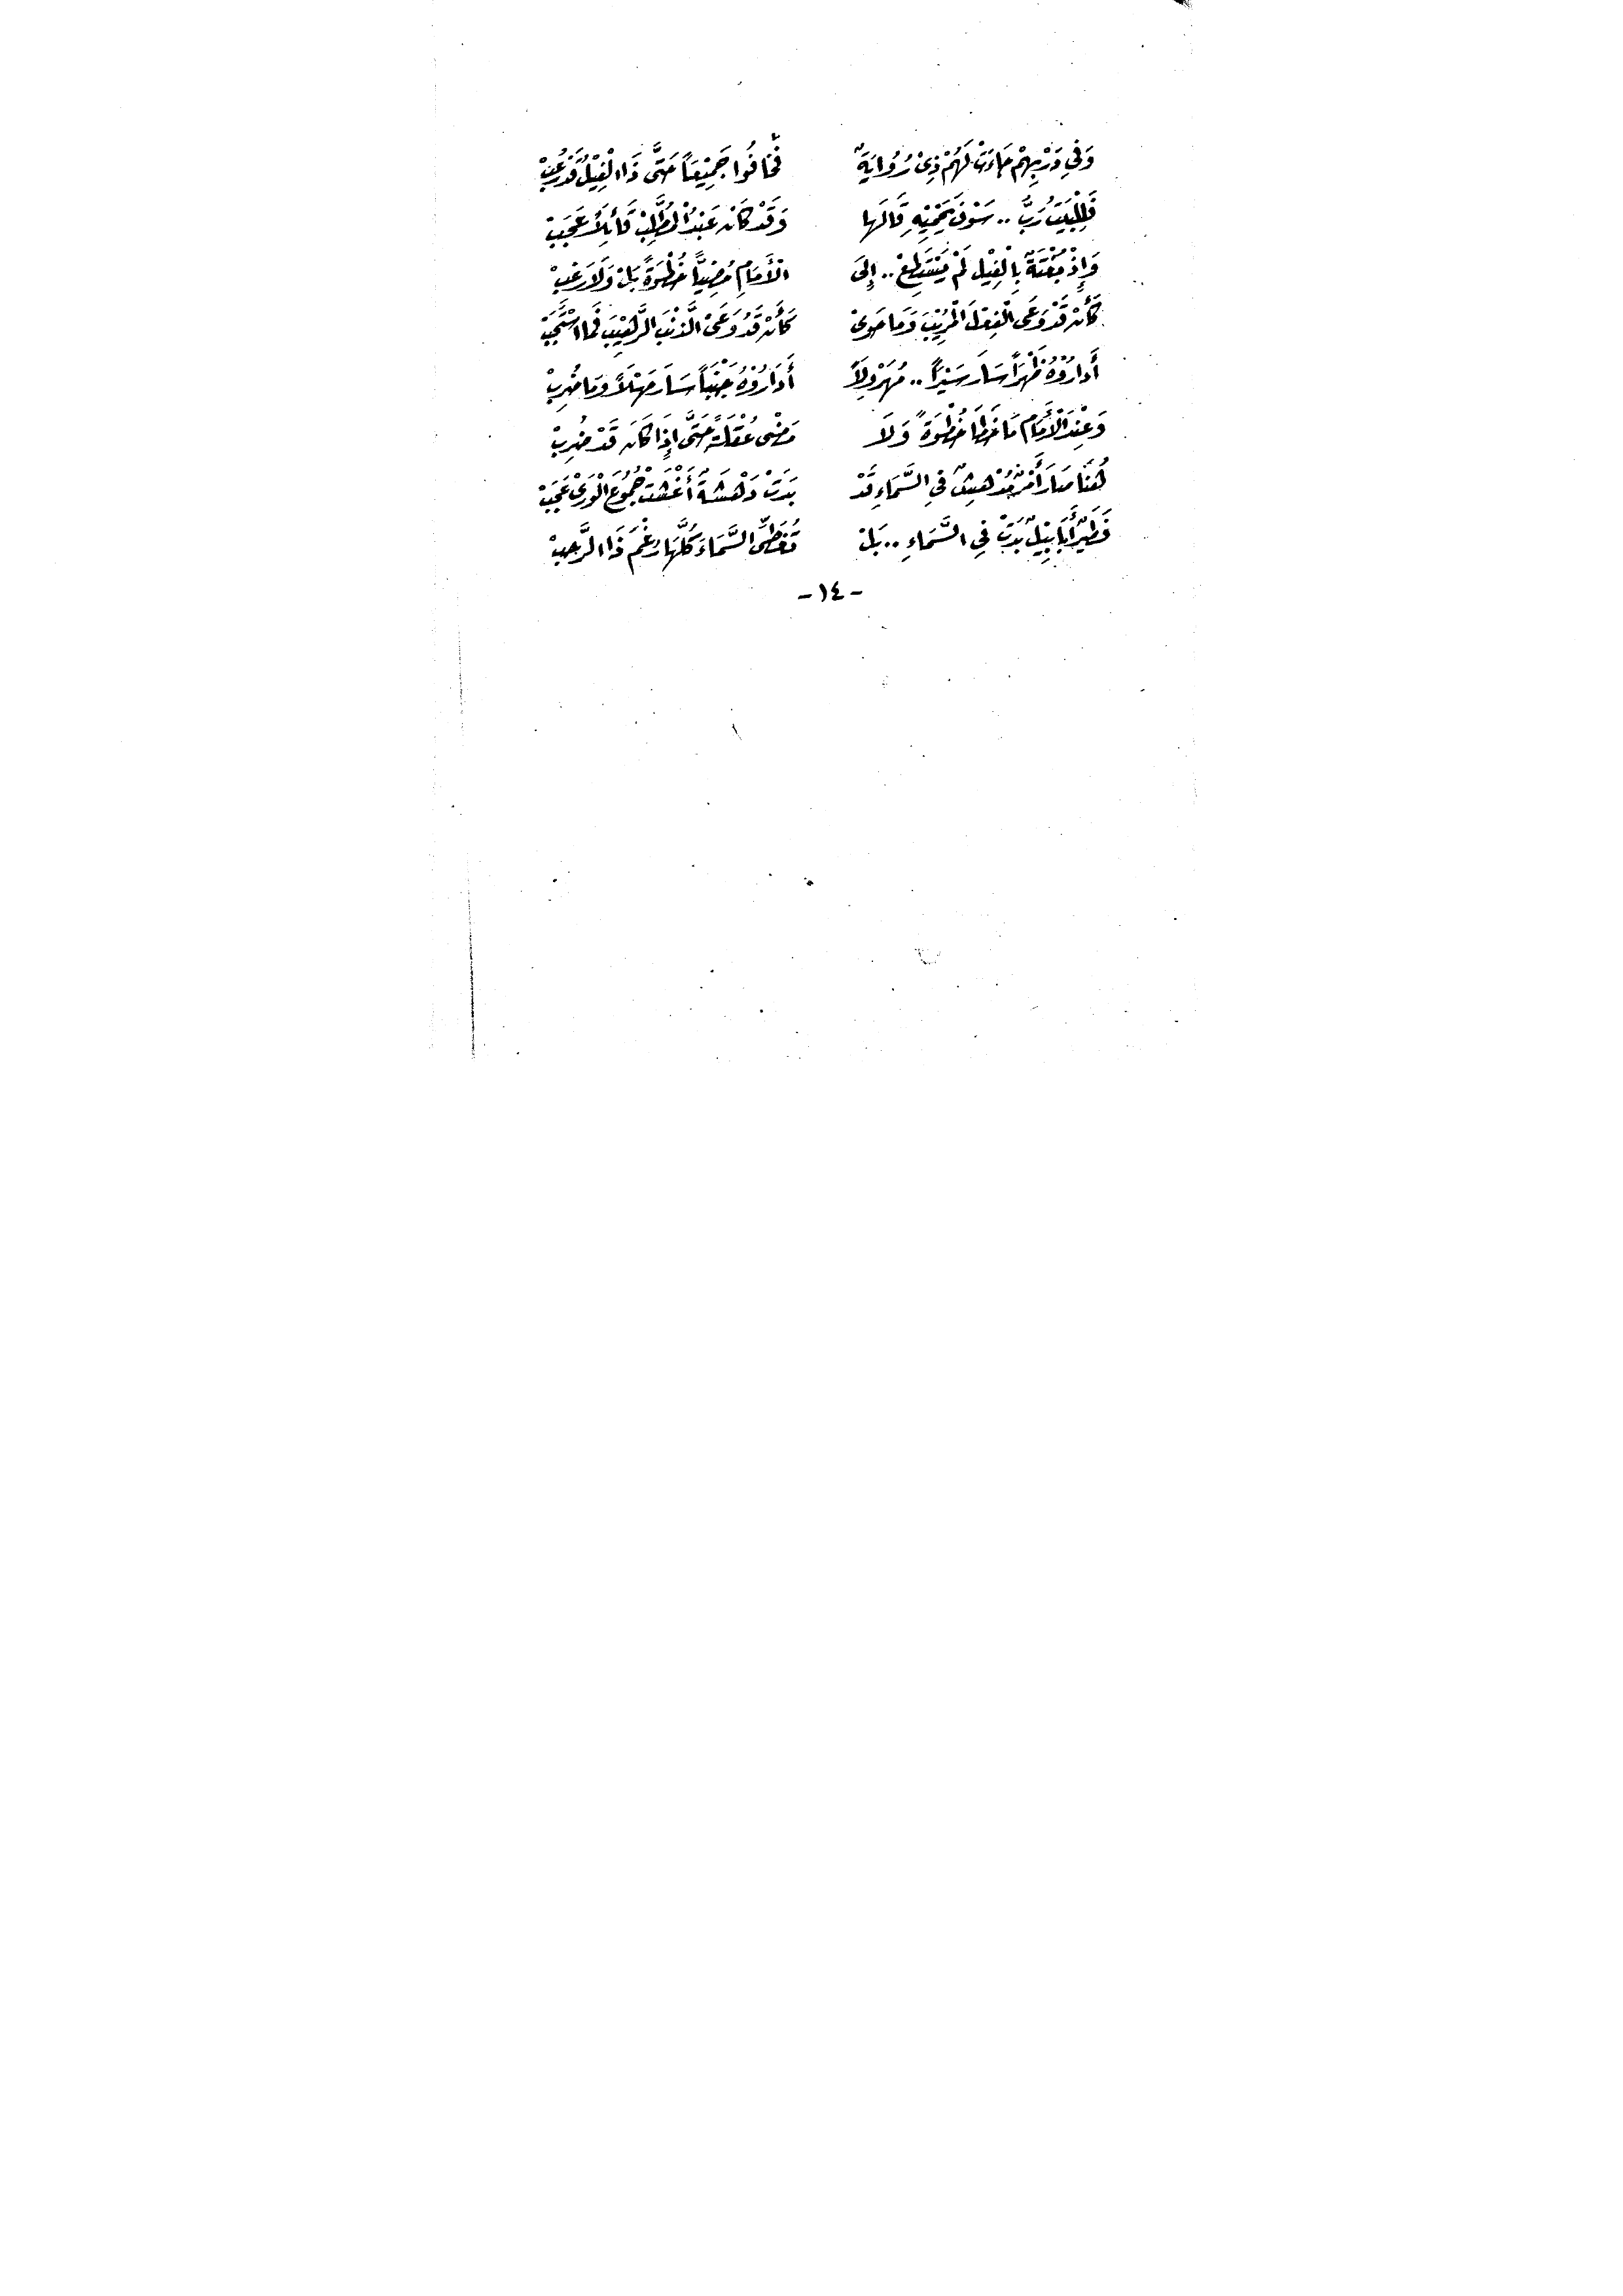 وَفِي دَرْبِهِمْ جَاءَتْ لَهُمْ ذِيْ رُوَايَةٌ فَخَافُوا جَمِيْعَاً حَتَّى ذَا الْفِيْلُ قَدْ رُعِبْ
فَلِلْبَيْتِ رَبٌّ .. سَوْفَ يَحْمِيْهِ قَالَهَا وَقَدْ كَانَ عَبْدُ الْمُطَّلِبْ قَائِلاً عَجَبْ
وَإِذْ بَغْتَةً بِالْفِيْلِ لَمْ يَسْتَطِعْ .. إِلَى الْأَمَامِ مُضِيًّا خُطْوَةً بَلْ وَلَا رَغِبْ
كَأَنْ قَدْ وَعَى الْفِعْلَ الْمُرِيْبَ وَمَا حَوَىْ كَأَنْ قَدْ وَعَىْ الذَّنْبَ الرَّهِيْبَ فَمَا اسْتَجَبْ
أَدارُوْهُ ظَهْرَاً سَارَ سَيْرَاً .. مُهَرْوِلَاً أَدَارُوْهُ جَنْبَاً سَارَ مَهْلَاً وَمَا ضُرِبْ
وَعِنْدَ الْأَمَامِ مَا خَطَا خُطْوَةً وَلَا مَضْى عُقْلَةً حَتَّى إِذَا كَانَ قَدْ ضُرِبْ
هُنَا صَارَ أَمْرٌ مُدْهِشٌ فِي السَّمَاءِ قَدْ بَدَتْ دَهْشَةٌ أَغْشَتْ جُمُوْعَ الْوَرَىْ عَجَبْ
فَطَيْرٌ أَبَابِيْلٌ بَدَتْ فِي السَّمَاءِ .. بَلْ تُغَطِّى السَّمَاءَ كُلَّهَا رَغْمَ ذَا الرَّحِبْ
- ١٤ -